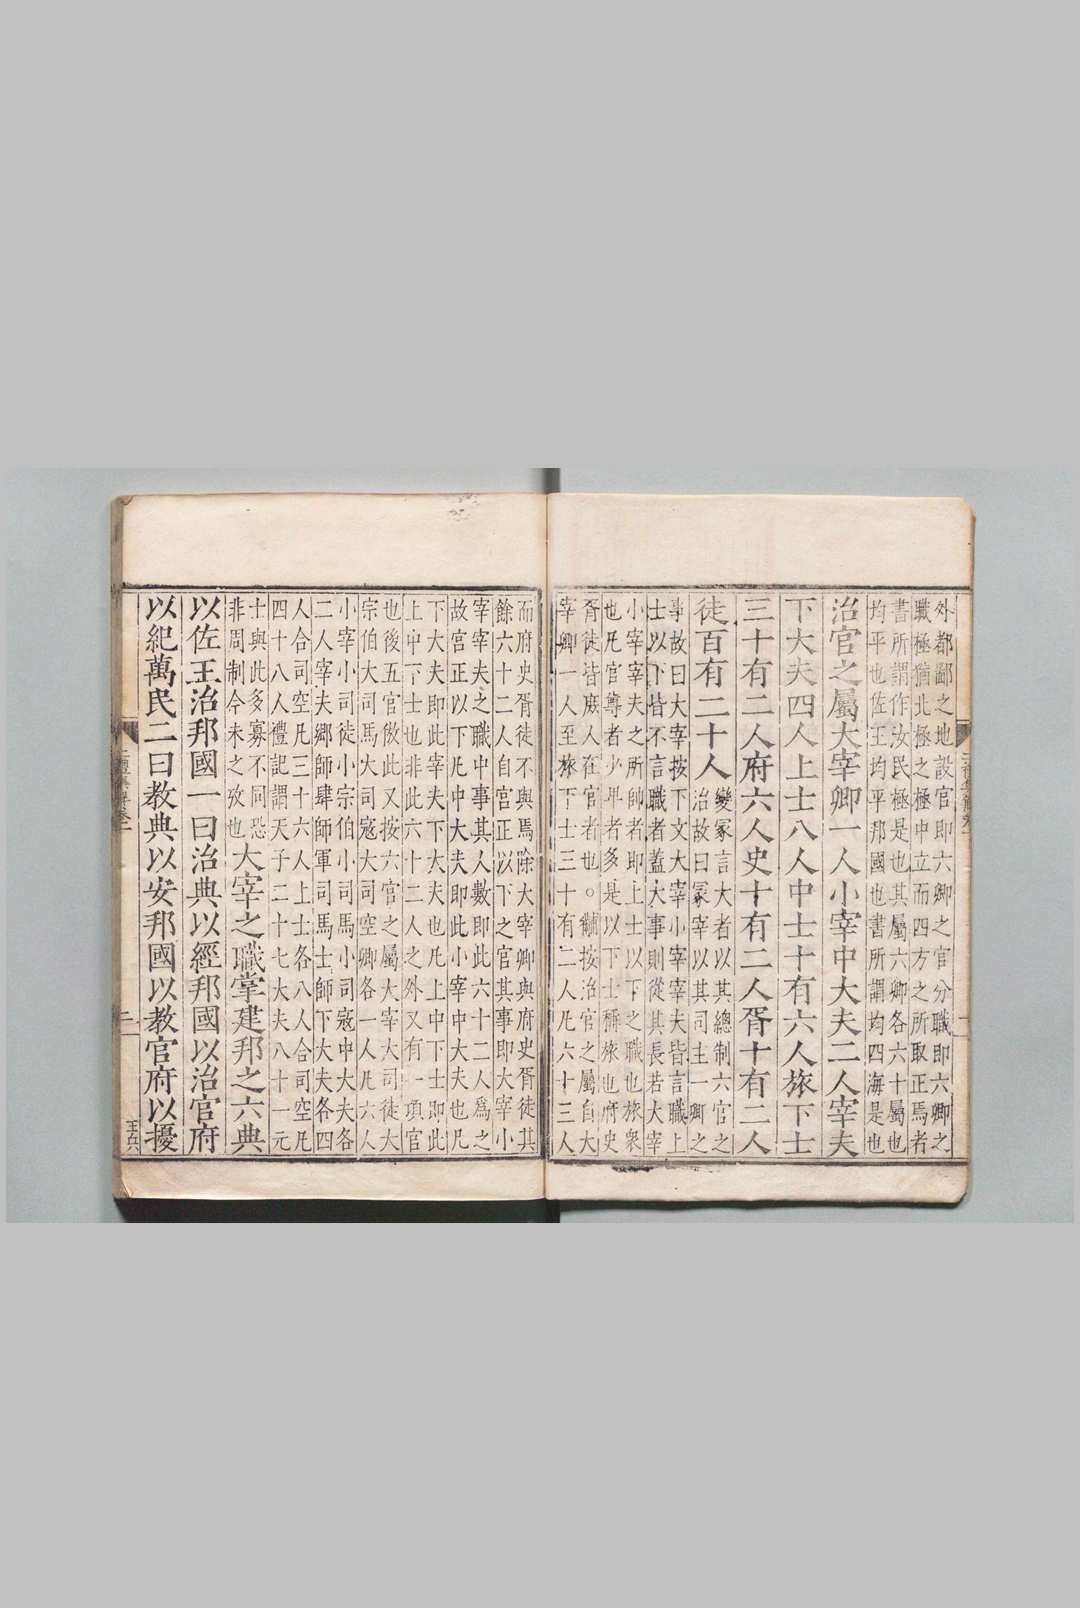 外都鄙之地設官即六卿之官分職即六卿之
職極猶北極之極中立而四方之所取正焉者
書所謂作汝民極是也其屬六卿各六十屬也
均平也佐王均平邦國也書所謂均四海是也
治官之屬大宰卿一人小宰中大夫二人宰夫
下大夫四人上士八人中士十有六人旅下士
三十有二人府六人史十有二人胥十有二人
徒百有二十人
變冢言大者以其總制六官之
治故曰冢宰以其司主一卿之
事故曰大宰按下文大宰小宰宰夫皆言職上
士以下皆不言職者蓋大事則從其長若大宰
小宰宰夫之所帥者即上士以下之職也旅衆
也凡官尊者少卑者多是以下士稱旅也府史
胥徒皆庶人在官者也○鱗按治官之屬自大
宰卿一人至旅下士三十有二人凡六十三人
而府史胥徒不與焉除大宰卿與府史胥徒其
餘六十二人自宮正以下之官其事即大宰小
宰宰夫之職中事其人數即此六十二人爲之
故宮正以下凡中大夫即此小宰中大夫也凡
下大夫即此宰夫下大夫也凡上中下士即此
上中下士也非此六十二人之外又有一項官
也後五官倣此又按六官之屬大宰大司徒大
宗伯大司馬大司寇大司空卿各一人凡六人
小宰小司徒小宗伯小司馬小司寇中大夫各
二人宰夫鄉師肆師軍司馬士師下大夫各四
人合司空凡三十六人上士各八人合司空凡
四十八人禮記謂天子二十七大夫八十一元
士與此多寡不同恐
非周制今未之攷也
大宰之職掌建邦之六典
以佐王治邦國一曰治典以經邦國以治官府
以紀萬民二曰教典以安邦國以教官府以擾
二